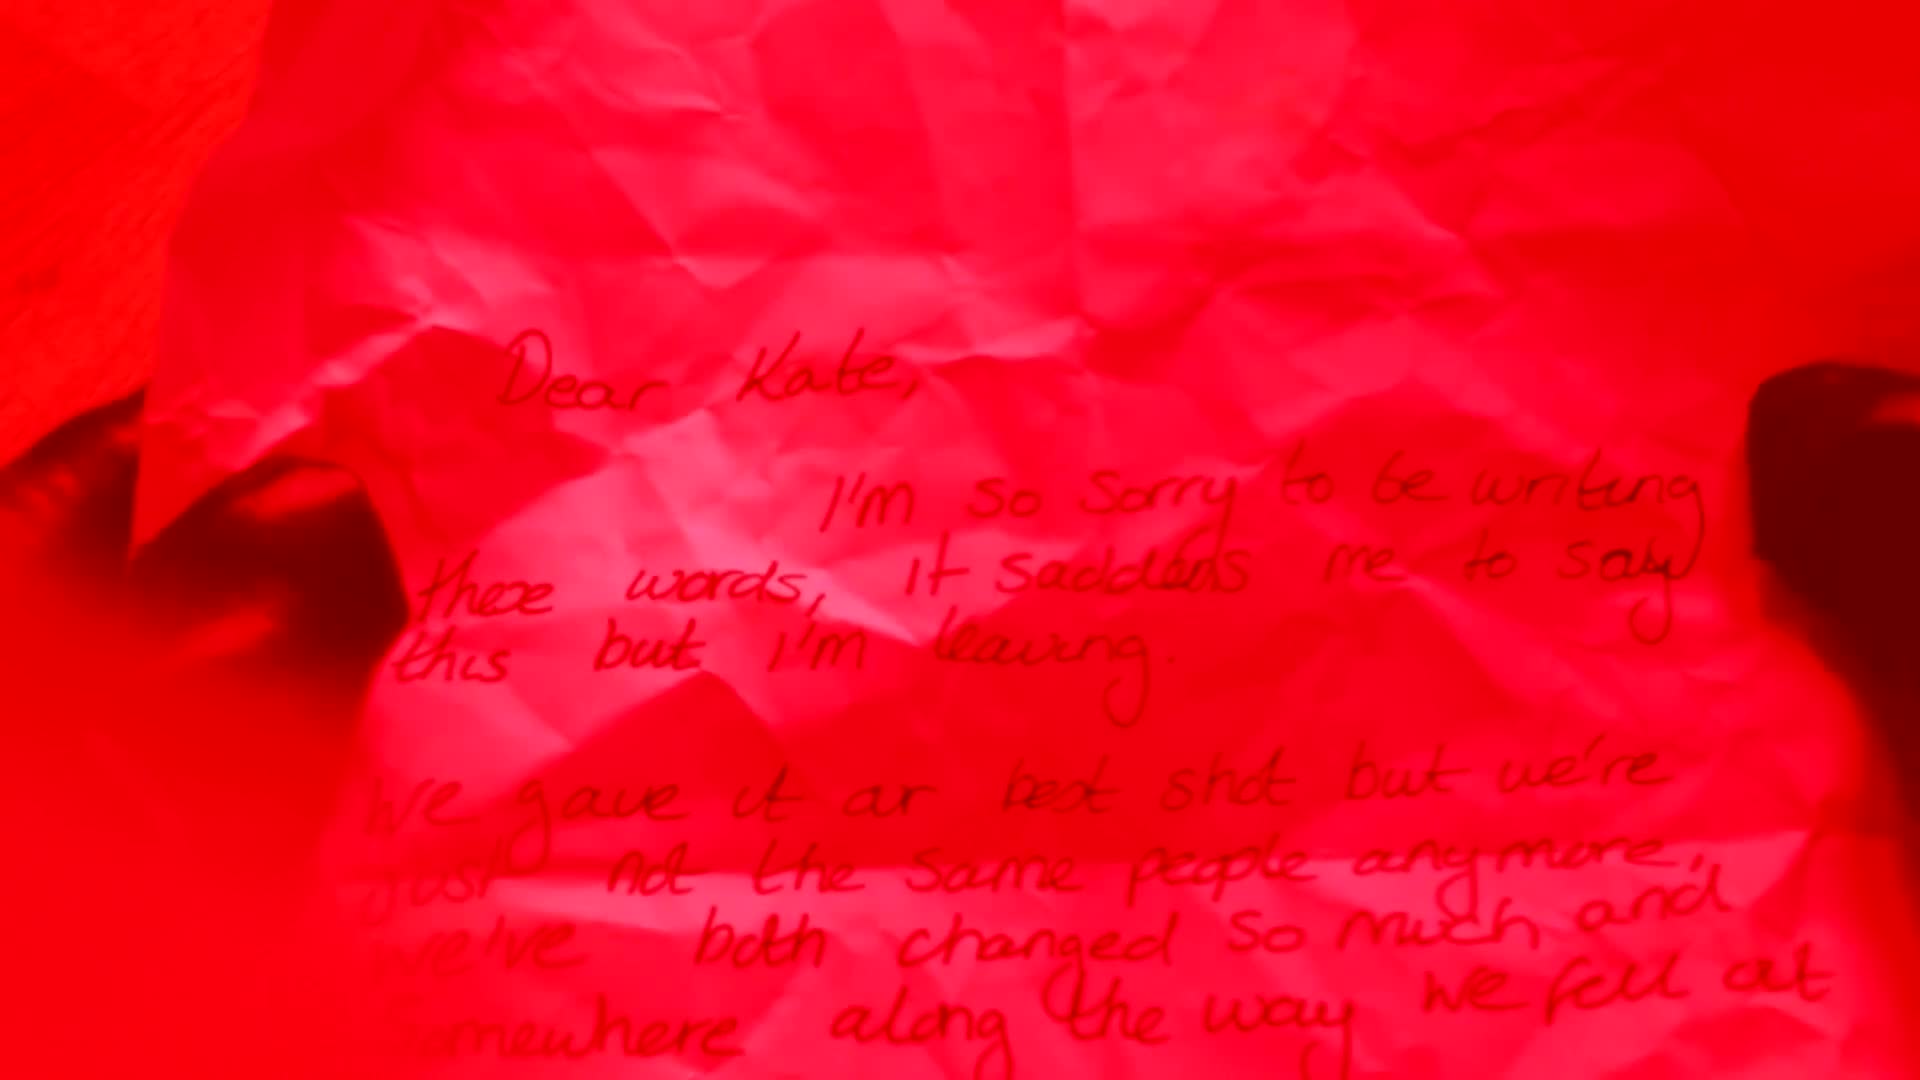 Dear Kate,
I'm so sorry to be writing
these words, it saddens me to say
this but I'm leaving.
We gave it ar best shot but we're
Just not the same people anymore,
we've both changed so much and
somewhere along the way we fell out